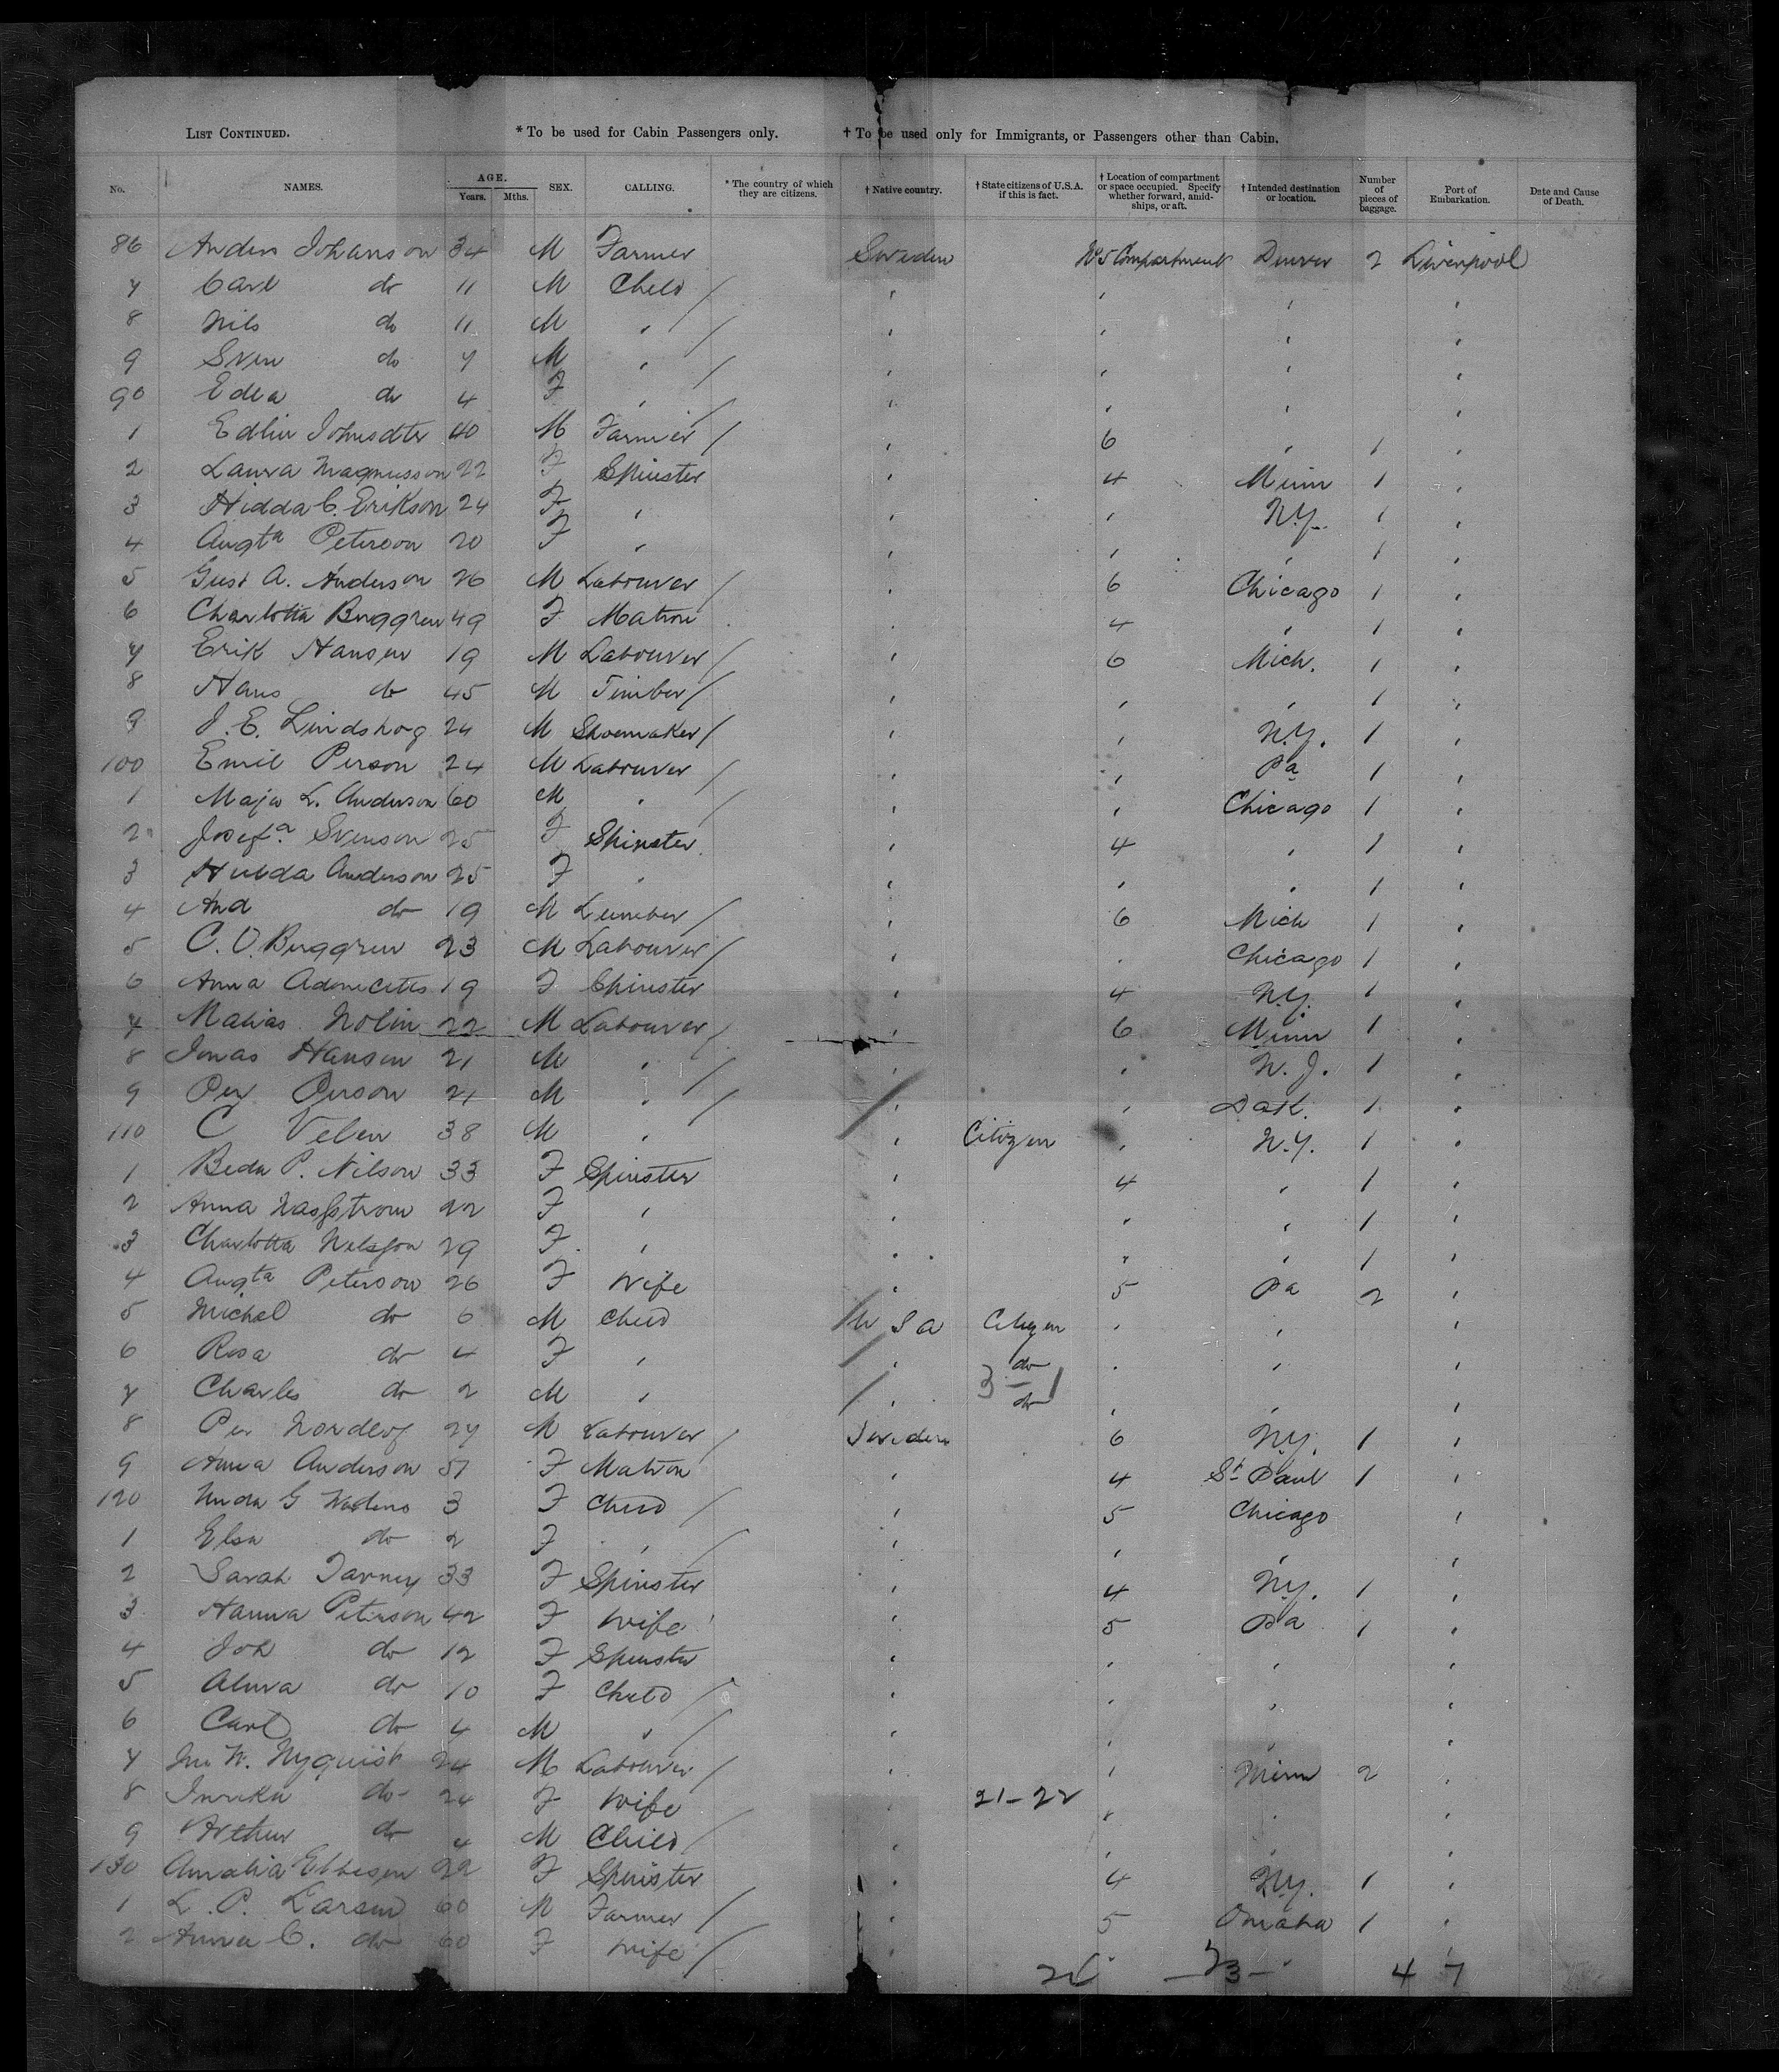 LIST CONTINUED. * To be used for Cabin Passengers only. † To be used only for Immigrants, or Passengers other than Cabin.
No. NAMES. AGE. Years. Mths. SEX. CALLING. * The country of which they are citizens. † Native country. † State citizens of U.S.A. if this is fact. † Location of compartment or space occupied. Specify whether forward, amidships, or aft. † Intended destination or location. Number of pieces of baggage. Port of Embarkation. Date and Cause of Death.
86 Anders Johanson 34 M Farmer Sweden No 5 Compartment Denver 2 Liverpool
7 Carl do 11 M Child / " " " "
8 Nils do 11 M " / " " " "
9 Sven do 7 M " / " " " "
90 Edla do 4 F " / " " " "
1 Edlin Johnsdter 40 M Farmer / " 6 " 1 "
2 Laura Magnusson 22 F Spinster " 4 Minn 1 "
3 Hidda C. Erikson 24 F " " " N.Y. 1 "
4 Augta Peterson 20 F " " " " 1 "
5 Gust A. Anderson 26 M Labourer / " 6 Chicago 1 "
6 Charlotta Buggren 49 F Matron " 4 " 1 "
7 Erik Hansen 19 M Labourer / " 6 Mich. 1 "
8 Hans do 45 M Timber / " " " 1 "
9 J. E. Lindskog 24 M Shoemaker / " " N.Y. 1 "
100 Emil Person 24 M Labourer / " " Pa 1 "
1 Maja L. Anderson 60 M " / " " Chicago 1 "
2 Josefa Svenson 25 F Spinster " 4 " 1 "
3 Hulda Anderson 25 F " " " " 1 "
4 And do 19 M Lumber / " 6 Mich 1 "
5 C. O. Buggren 23 M Labourer / " " Chicago 1 "
6 Anna 19 F Spinster " 4 N.Y. 1 "
7 Matias Nolin 22 M Labourer / " 6 Minn 1 "
8 Jonas Hansen 21 M " / " " N. J. 1 "
9 Per Person 21 M " / " " Dak. 1 "
110 C Velen 38 M " / " Citizen " N.Y. 1 "
1 Beda P. Nilson 33 F Spinster " 4 " 1 "
2 Anna Nasström 22 F " " " " 1 "
3 Charlotta Nelsson 29 F " " " " 1 "
4 Augta Peterson 26 F Wife " 5 Pa 2 "
5 Michel do 6 M Child / U S A Citizen " " "
6 Rosa do 4 F " / " do " " "
3 – 1
7 Charles do 2 M " / " do " " "
8 Per Nordlof 27 M Labourer / Sweden 6 N.Y. 1 "
9 Anna Anderson 51 F Matron " 4 St Paul 1 "
120 G 3 F Child / " 5 Chicago "
1 Elsa do 2 F " / " " " "
2 Sarah Tarney 33 F Spinster " 4 N.Y. 1 "
3 Hanna Peterson 42 F Wife " 5 Pa 1 "
4 Joh do 12 F Spinster " " " "
5 Alma do 10 F Child / " " " "
6 Carl do 4 M " / " " " "
7 W. Nyquist 24 M Labourer / " " Minn 2 "
8 do 24 F Wife " 21–22 " " "
9 Arthur do 4 M Child / " " " "
130 Amalia Ebbesen 22 F Spinster " 4 N.Y. 1 "
1 L. P. Larsen 60 M Farmer / " 5 Omaha 1 "
2 Anna C. do 60 F Wife / " " " "
23 – 47